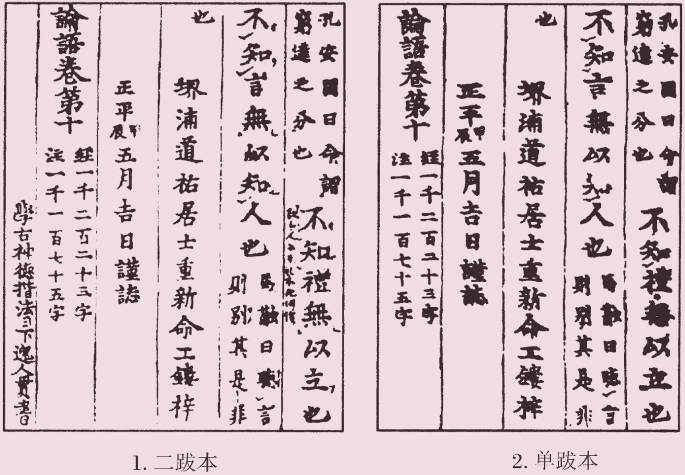 孔安國曰命謂
窮達之分也
不知禮無以立也
不知言無以知人也
馬融曰聽言
則別其是非
也
堺浦道祐居士重新命工鏤梓
正平甲辰五月吉日謹誌
論語卷第十
經一千二百二十三字
注一千一百七十五字
學古神德揩法日下逸人貫書
1. 二跋本
孔安國曰命謂
窮達之分也
不知禮無以立也
不知言無以知人也
馬融曰聽言
則別其是非
也
堺浦道祐居士重新命工鏤梓
正平甲辰五月吉日謹誌
論語卷第十
經一千二百二十三字
注一千一百七十五字
2. 单跋本